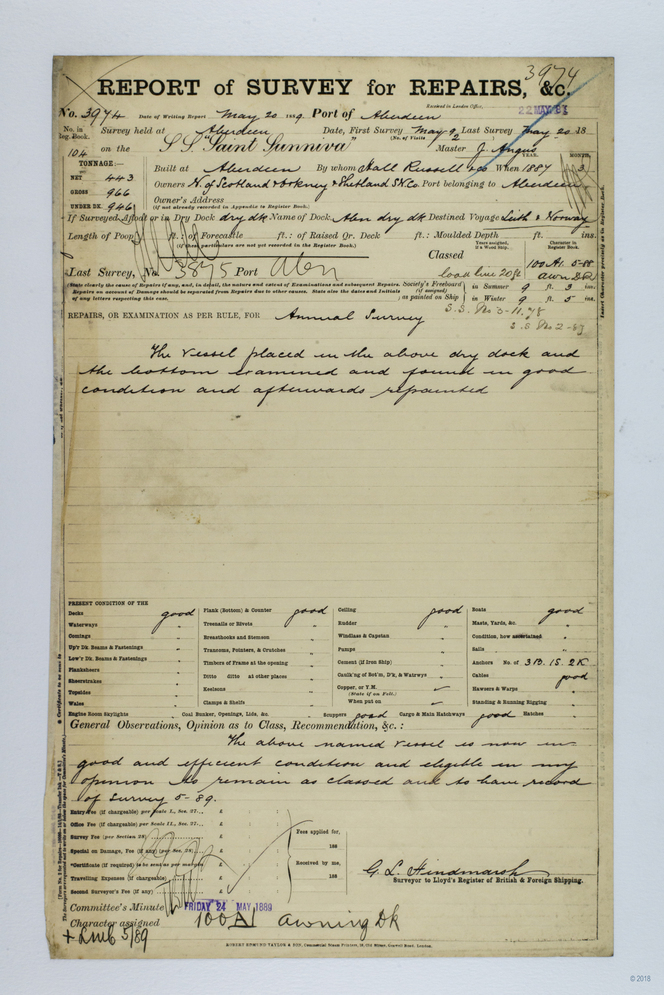 3974
REPORT of SURVEY for REPAIRS, &c.
Received in London Office,
22 MAY 8
No. 3974 Date of Writing Report May 20 1889 Port of Aberdeen
No. in Reg. Book. Survey held at Aberdeen Date, First Survey May 9 Last Survey May 20 18
(No. of Visits 2)
104 on the S.S. "Saint Sunniva" Master J. Angus
TONNAGE:—
YEAR. MONTH.
Built at Aberdeen By whom Hall Russell & Co When 1887 3
NET 443
GROSS 966
UNDER DK. 946
Owners N. of Scotland & Orkney & Shetland S.N.Co. Port belonging to Aberdeen
Owner's Address
(If not already recorded in Appendix to Register Book.)
If Surveyed Afloat or in Dry Dock dry dk Name of Dock Aben dry dk Destined Voyage Leith & Norway
Length of Poop ft.: of Forecastle ft.: of Raised Qr. Deck ft.: Moulded Depth ft. ins.
(If these particulars are not yet recorded in the Register Book.)
Years assigned, if a Wood Ship. Character in Register Book.
Classed 100A1. 5-88
Last Survey, No. 3875 Port Aben load line 20ft awn DK
(State clearly the cause of Repairs if any, and, in detail, the nature and extent of Examinations and subsequent Repairs.
Repairs on account of Damage should be separated from Repairs due to other causes. State also the dates and initials
of any letters respecting this case.
Society's Freeboard (if assigned) as painted on Ship
in Summer 9 ft. 3 ins.
in Winter 9 ft. 5 ins.
REPAIRS, OR EXAMINATION AS PER RULE, FOR Annual Survey
The vessel placed in the above dry dock and
the bottom examined and found in good
condition and afterwards repainted
PRESENT CONDITION OF THE
Decks good Plank (Bottom) & Counter good Ceiling good Boats good
Waterways " Treenails or Rivets " Rudder " Masts, Yards, &c. "
Comings " Breasthooks and Stemson " Windlass & Capstan " Condition, how ascertained "
Up'r Dk. Beams & Fastenings " Transoms, Pointers, & Crutches " Pumps " Sails "
Low'r Dk. Beams & Fastenings " Timbers of Frame at the opening " Cement (if Iron Ship) " Anchors No. of 3B. 1S. 2K.
Planksheers " Ditto ditto at other places " Caulk'ng of Bot'm, D'k, & Watrwys " Cables good
Sheerstrakes " Keelsons " Copper, or Y.M. Hawsers & Warps "
(State if on Felt.)
Topsides " Clamps & Shelfs " When put on Standing & Running Rigging "
Wales "
Engine Room Skylights " Coal Bunker, Openings, Lids, &c. " Scuppers good Cargo & Main Hatchways good Hatches "
General Observations, Opinion as to Class, Recommendation, &c. :
The above named vessel is now in
good and efficient condition and eligible in my
opinion to remain as classed and to have record
of Survey 5-89.
Entry Fee (if chargeable) per Scale I., Sec. 27... £
Office Fee (if chargeable) per Scale II., Sec. 27... £
Survey Fee (per Section 28) £
Special on Damage, Fee (if any) (per Sec. 28) £
*Certificate (if required) to be sent as per margin £
Travelling Expenses (if chargeable) £
Second Surveyor's Fee (if any) £
Fees applied for,
188
Received by me,
188
G. L. Hindmarsh
Surveyor to Lloyd's Register of British & Foreign Shipping.
Committee's Minute FRIDAY 24 MAY 1889
Character assigned 100A1 Awning Dk
+ LMC 5/89
© 2018